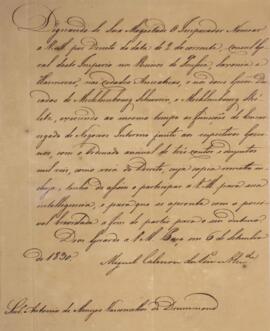 Dignando-se Sua Magestade O Imperador Nomear
a V.M. por Decreto da data de 2 do corrente, Consul Ge-
ral deste Imperio nos Reinos de Prussia, Saxonia e
Hannover, nas cidades Anseaticas, e nos dous Gram Du-
cados de Mecklembourg Schwerin, e Mecklembourg Stre-
litz, exercendo ao mesmo tempo as funcções de Encar-
regado de Negocios Interino junto aos respectivos Gover-
nos, com o Ordenado annual de tres contos e duzentos
mil reis, como verá do Decreto, cuja copia remetto in-
clusa; tenho a participar a V.M. para sua
intelligencia, e para que se apromte com a possi-
vel brevidade a fim de partir para o seu destino.
Deos Guarde a V.M. Paço em 6 de Setembro
de 1830.
Miguel Calmon du Pin e Alm.da
Snr. Antonio de Menezes Vasconcellos de Drummond